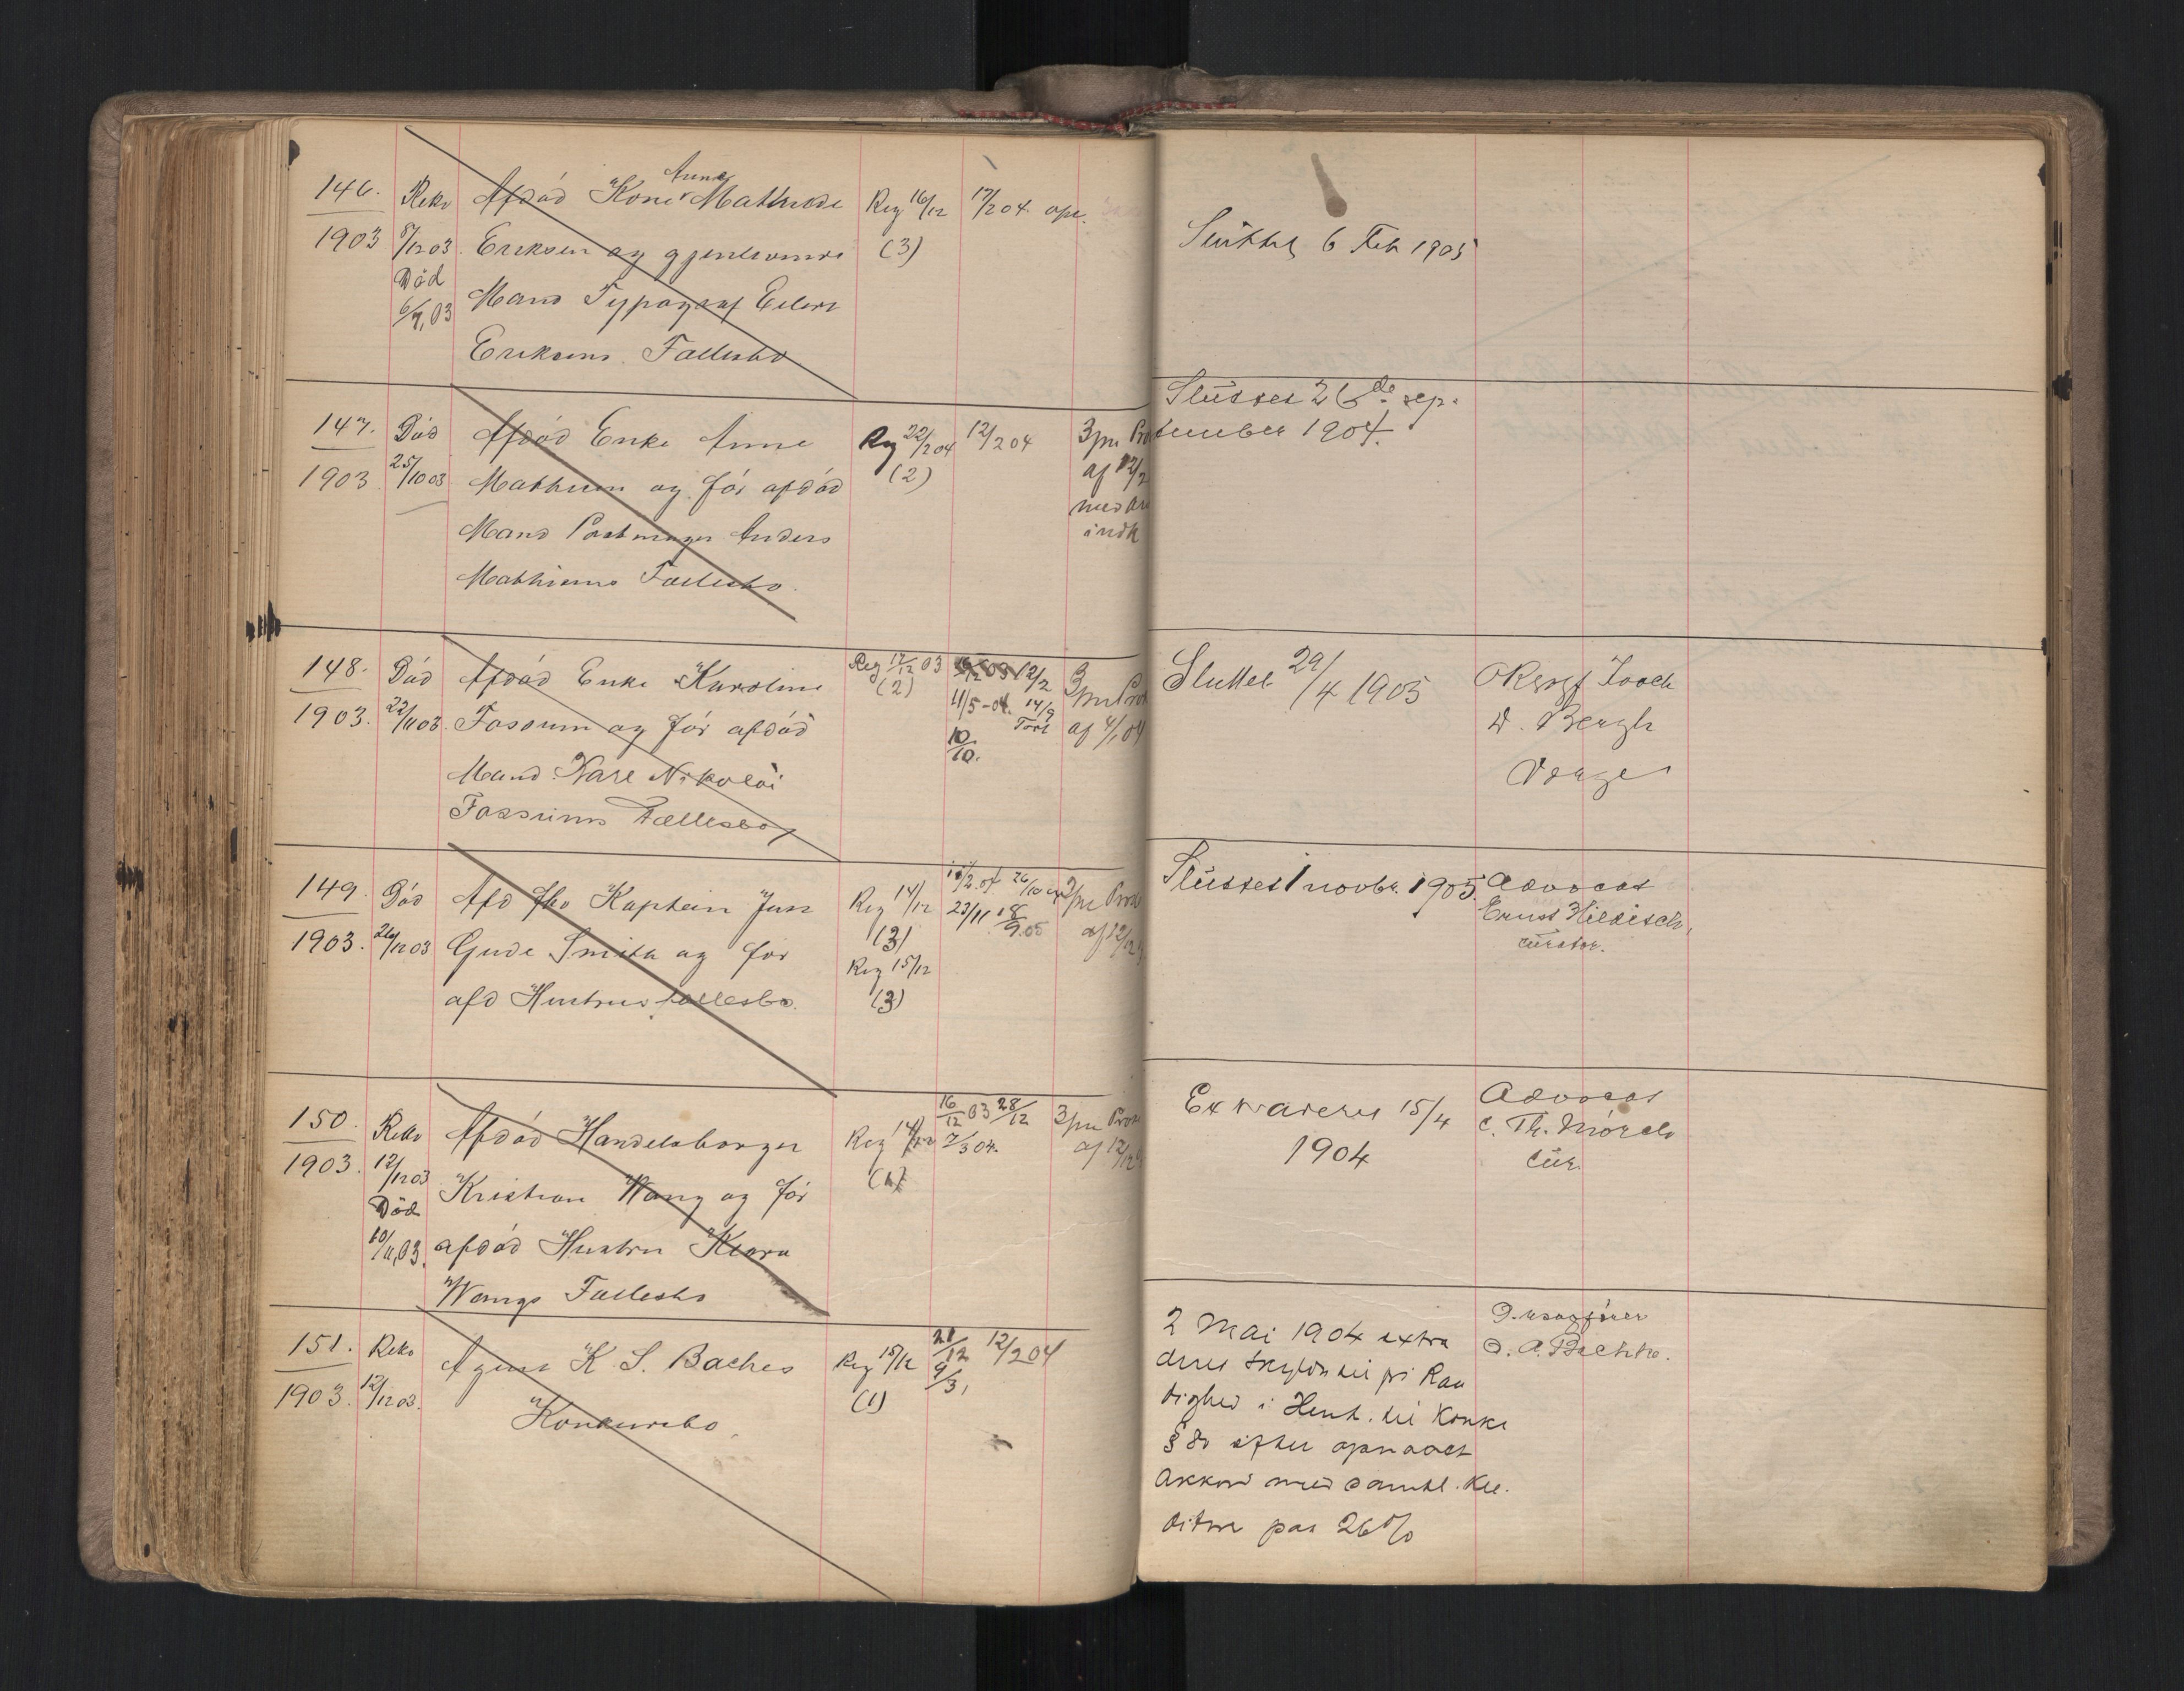 146. Rekv Afdød Kone Anna Mathilde Reg 16/12 17/2 04 ope.
1903 8/12 03. Eriksen og gjenlevende (3)
Død Mand Typograf Eilert
6/7, 03
Eriksens Fællesbo
Sluttet 6 Feb 1905
147. Død Afdød Enke Anne Reg 22/12 04 12/2 04 3m Pro
1903 25/10 03 Mathisen og før afdød (2) af 12/2
Mand Postbringer Anders med
indk
Mathisens Fællesbo.
Sluttet 26de sep-
tember 1904.
148. Død Afdød Enke Karoline Reg 17/12 03 03 12/2 3m Pro
1903. 22/11 03. Fossum og før afdød (2) 11/5-04. 14/9 af 4/1 04
10/10.
Mand Karl Nikolai
Fossums Fællesbo
Sluttet 29/4 1905 Joach
W. Bergh
149. Død Afd fhv Kaptein Jens Reg 14/12 26/10
1903. 26/12 03 Gude Smith og før (3) 23/11 18/9.05
Reg 15/12
afd Hustrus fællesbo. (3)
Sluttet 1 novbr. 1905. Advocat
Ernst Hildisch,
curator.
150. Rekv Afdød Handelsborger Reg 14/12 16/12 03 28/12 3m Pro
1903. 12/12 03 Kristian Wang og før 7/3 04. af 12/12
Død
10/11, 03. afdød Hustru Klara
Wangs Fællesbo
Extraderet 15/4 Advocat
1904 C. Th. Mørch
cur.
151. Rekv Agent K. S. Baches Reg 15/12 21/12 12/2 04
1903. 12/12 03. (1) 9/3,
Konkursbo.
2 Mai 1904 extra
O.rsagfører
deres Skyldn til fri Raa
O. A. Bachke.
dighed i Henh. til Konkl
§ 80 efter opnaaet
Akkord med samtl. Kre-
ditorer paa 26%